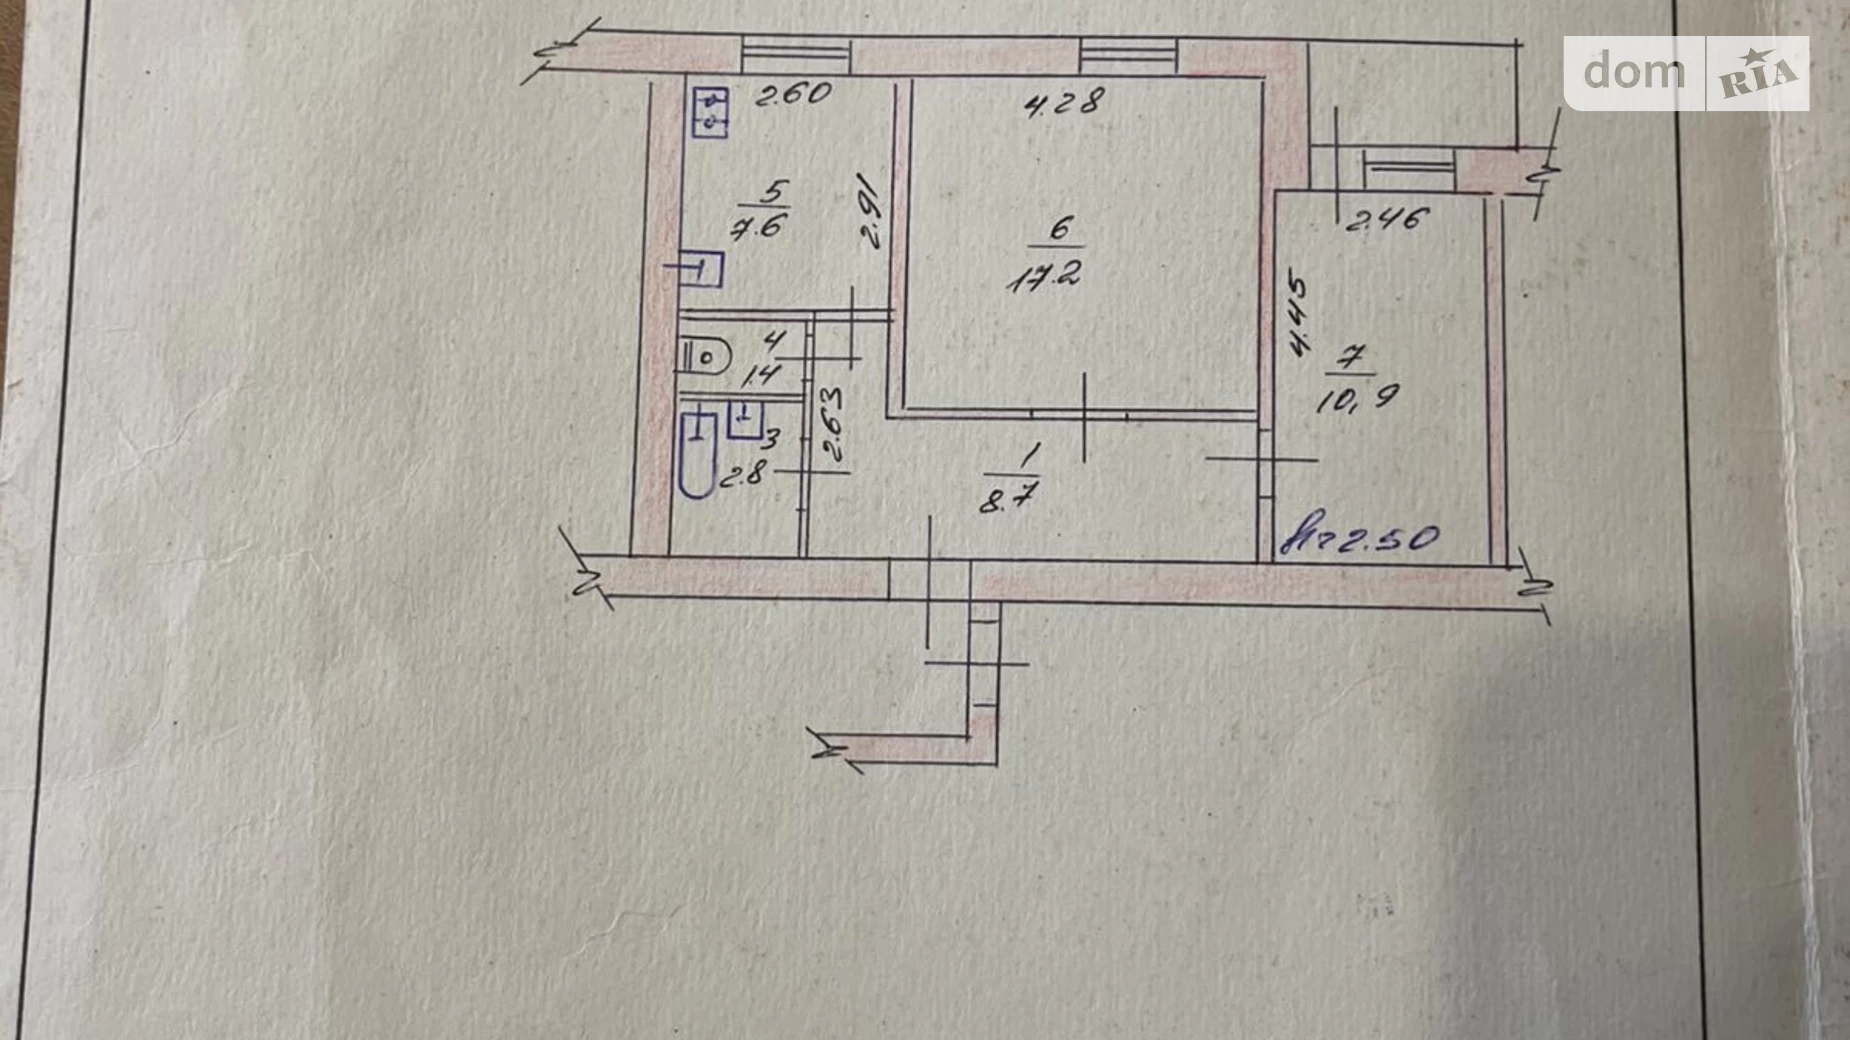 dom RIA
2.60
4.28
5
7.6
2.91
6
17.2
2.46
4.45
7
10,9
4
1.4
2.63
3
2.8
1
8.7
h=2.50